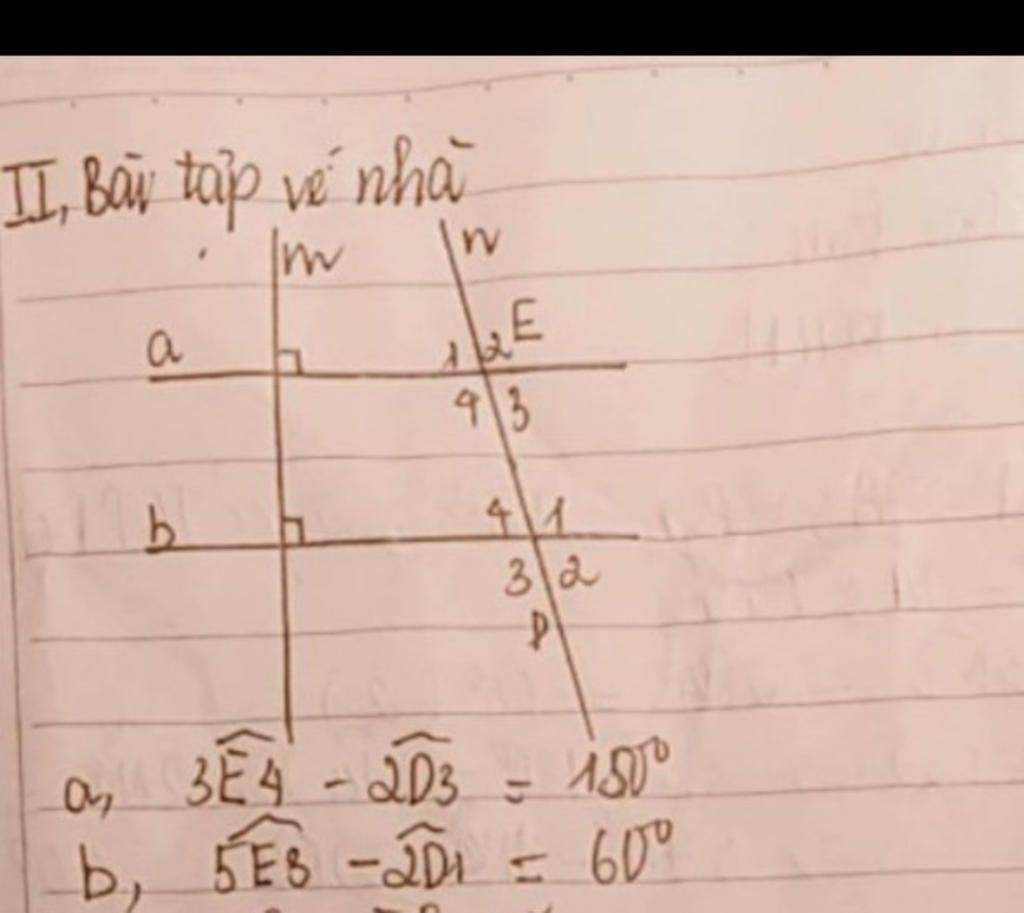 II, Bài tập về nhà
m n
a 1 2 E
4 3
b 4 1
3 2
D
a, 3Ê4 - 2D̂3 = 150°
b, 5Ê3 - 2D̂1 = 60°